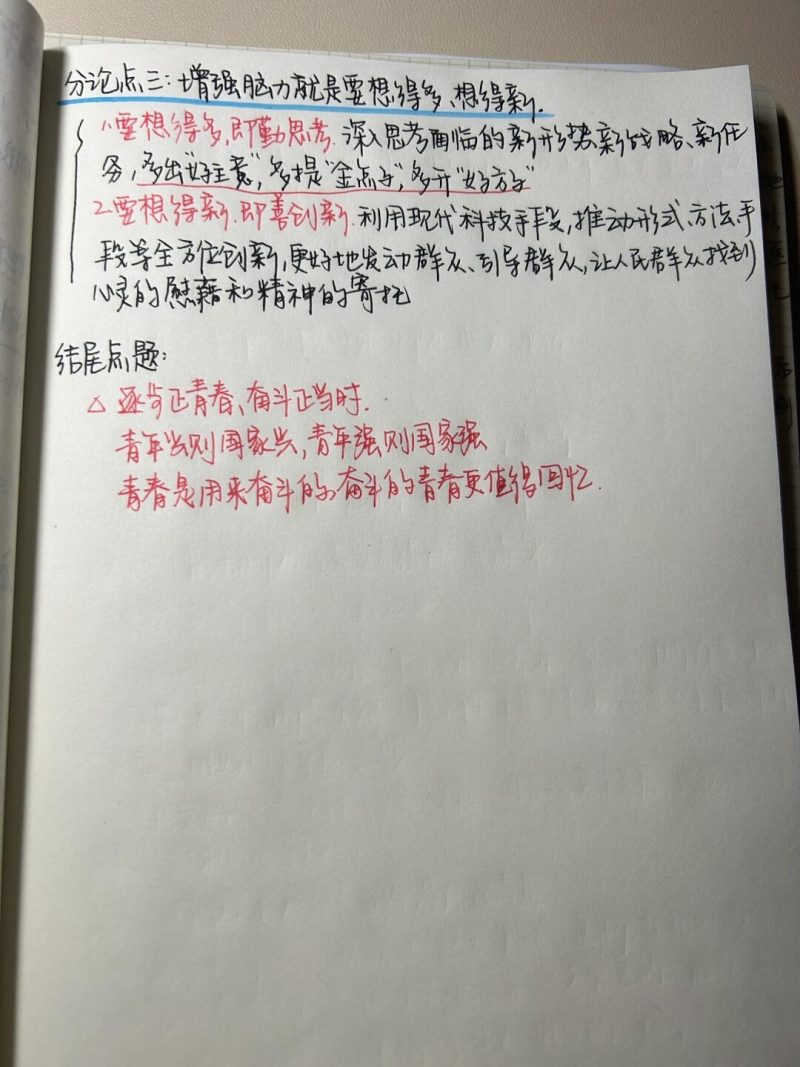 分论点三:增强脑力就是要想得多、想得新.
1.要想得多,即勤思考.深入思考面临的新形势、新战略、新任
务,多出"好主意",多提"金点子",多开"好方子"
2.要想得新.即善创新.利用现代科技手段,推动形式、方法、手
段等全方位创新,更好地发动群众、引导群众,让人民群众找到
心灵的慰藉和精神的寄托
结尾点题:
△ 逐步正青春、奋斗正当时.
青年兴则国家兴,青年强则国家强
青春是用来奋斗的,奋斗的青春更值得回忆.